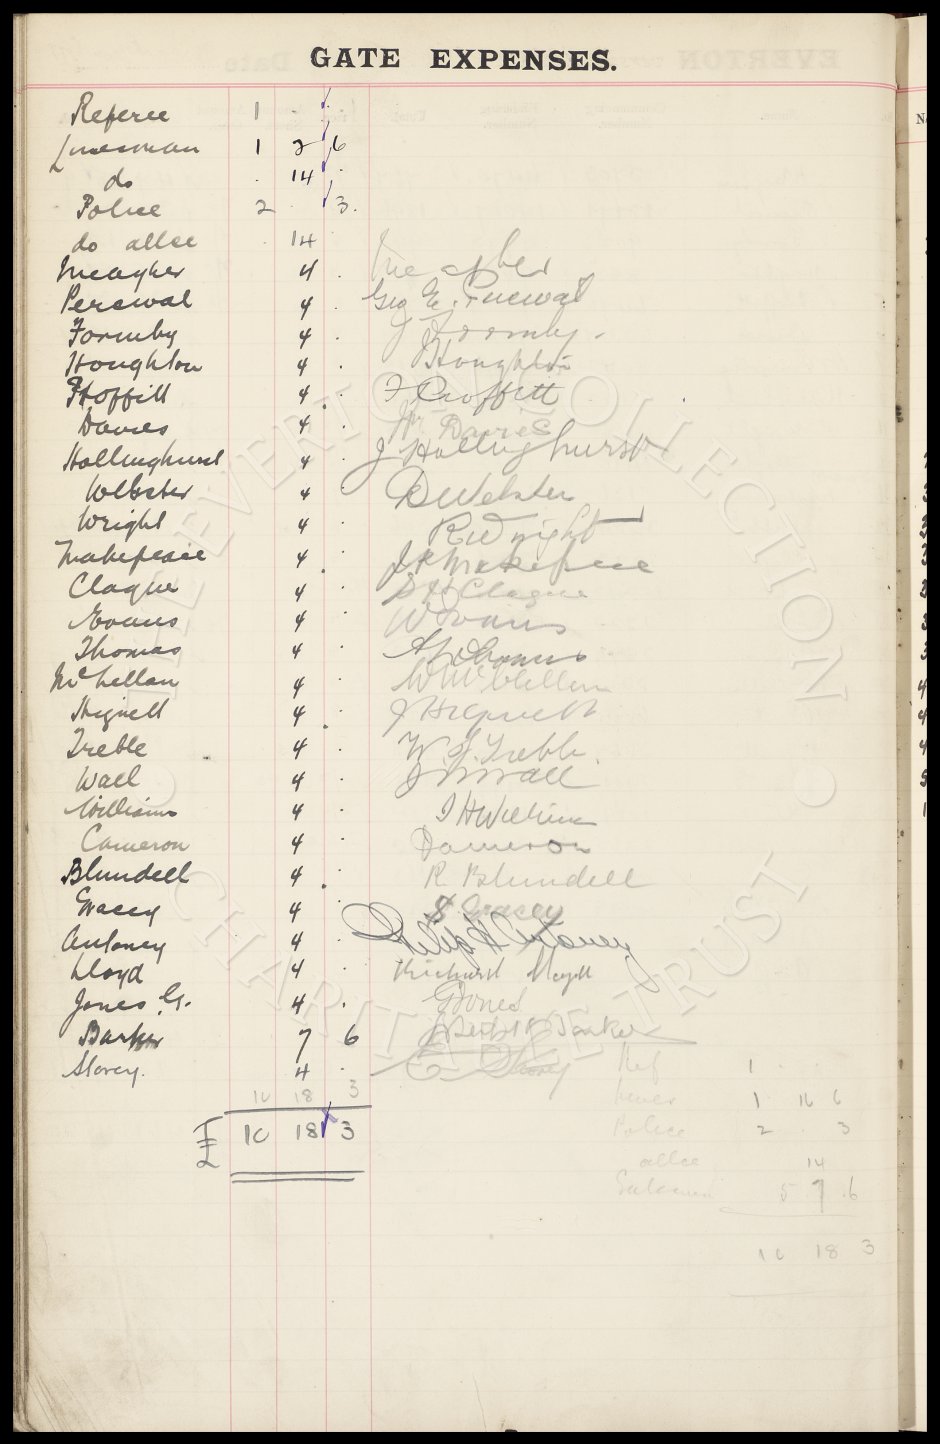 GATE EXPENSES.
Referee 1 . .
Linesman 1 2 6
do . 14 .
Police 2 . 3.
do allce . 14
Meagher 4 .
Percival 4 . Geo E. Percival
Formby 4 . J Formby.
Houghton 4 . J Houghton
4 .
Davies 4 . Wm Davies
Hollinghurst 4 . J Hollinghurst
Webster 4 . D Webster
Wright 4 . R Wright
Makepeace 4 . J.R Makepeace
Clague 4 . S H Clague
Evans 4 . W Evans
Thomas 4 . Thomas
McLellan 4 . W McClellan
Hignett 4 . J Hignett
Treble 4 . W. J. Treble.
Wall 4 . J Wall
Williams 4 . J H Williams
Cameron 4 . D Cameron
Blundell 4 . R Blundell
Gracey 4 . S. Gracey
Anloney 4 . Philip H Anloney
Lloyd 4 . Richard Lloyd
Jones G. 4 . G Jones
Barker 7 6 Barker
Storey. 4 . E Storey
10 18 3
£ 10 18 3
Ref 1 .
Lines 1 16 6
Police 2 . 3
allce 14
Gatemen 5 7 .6
10 18 3
THE EVERTON COLLECTION CHARITABLE TRUST